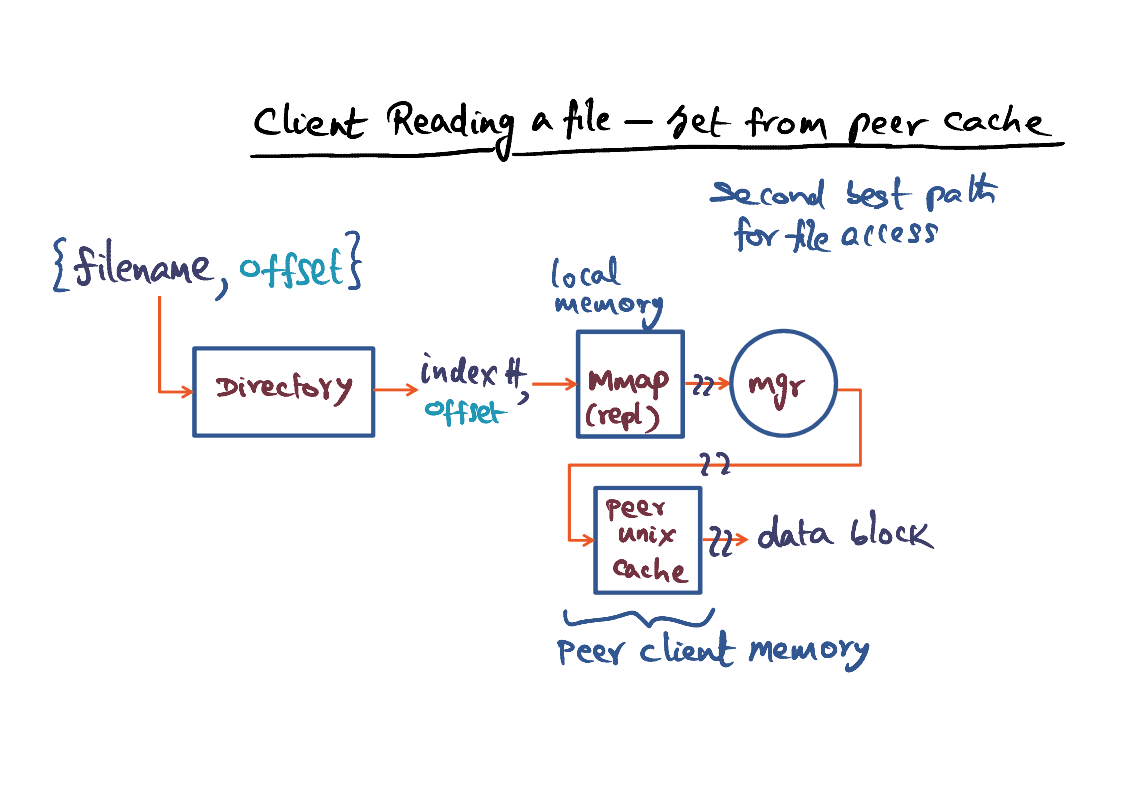 Client Reading a file – get from peer cache
second best path
for file access
{filename, offset}
local
memory
Directory
index #,
offset
Mmap
(repl)
mgr
peer
unix
cache
data block
peer client memory